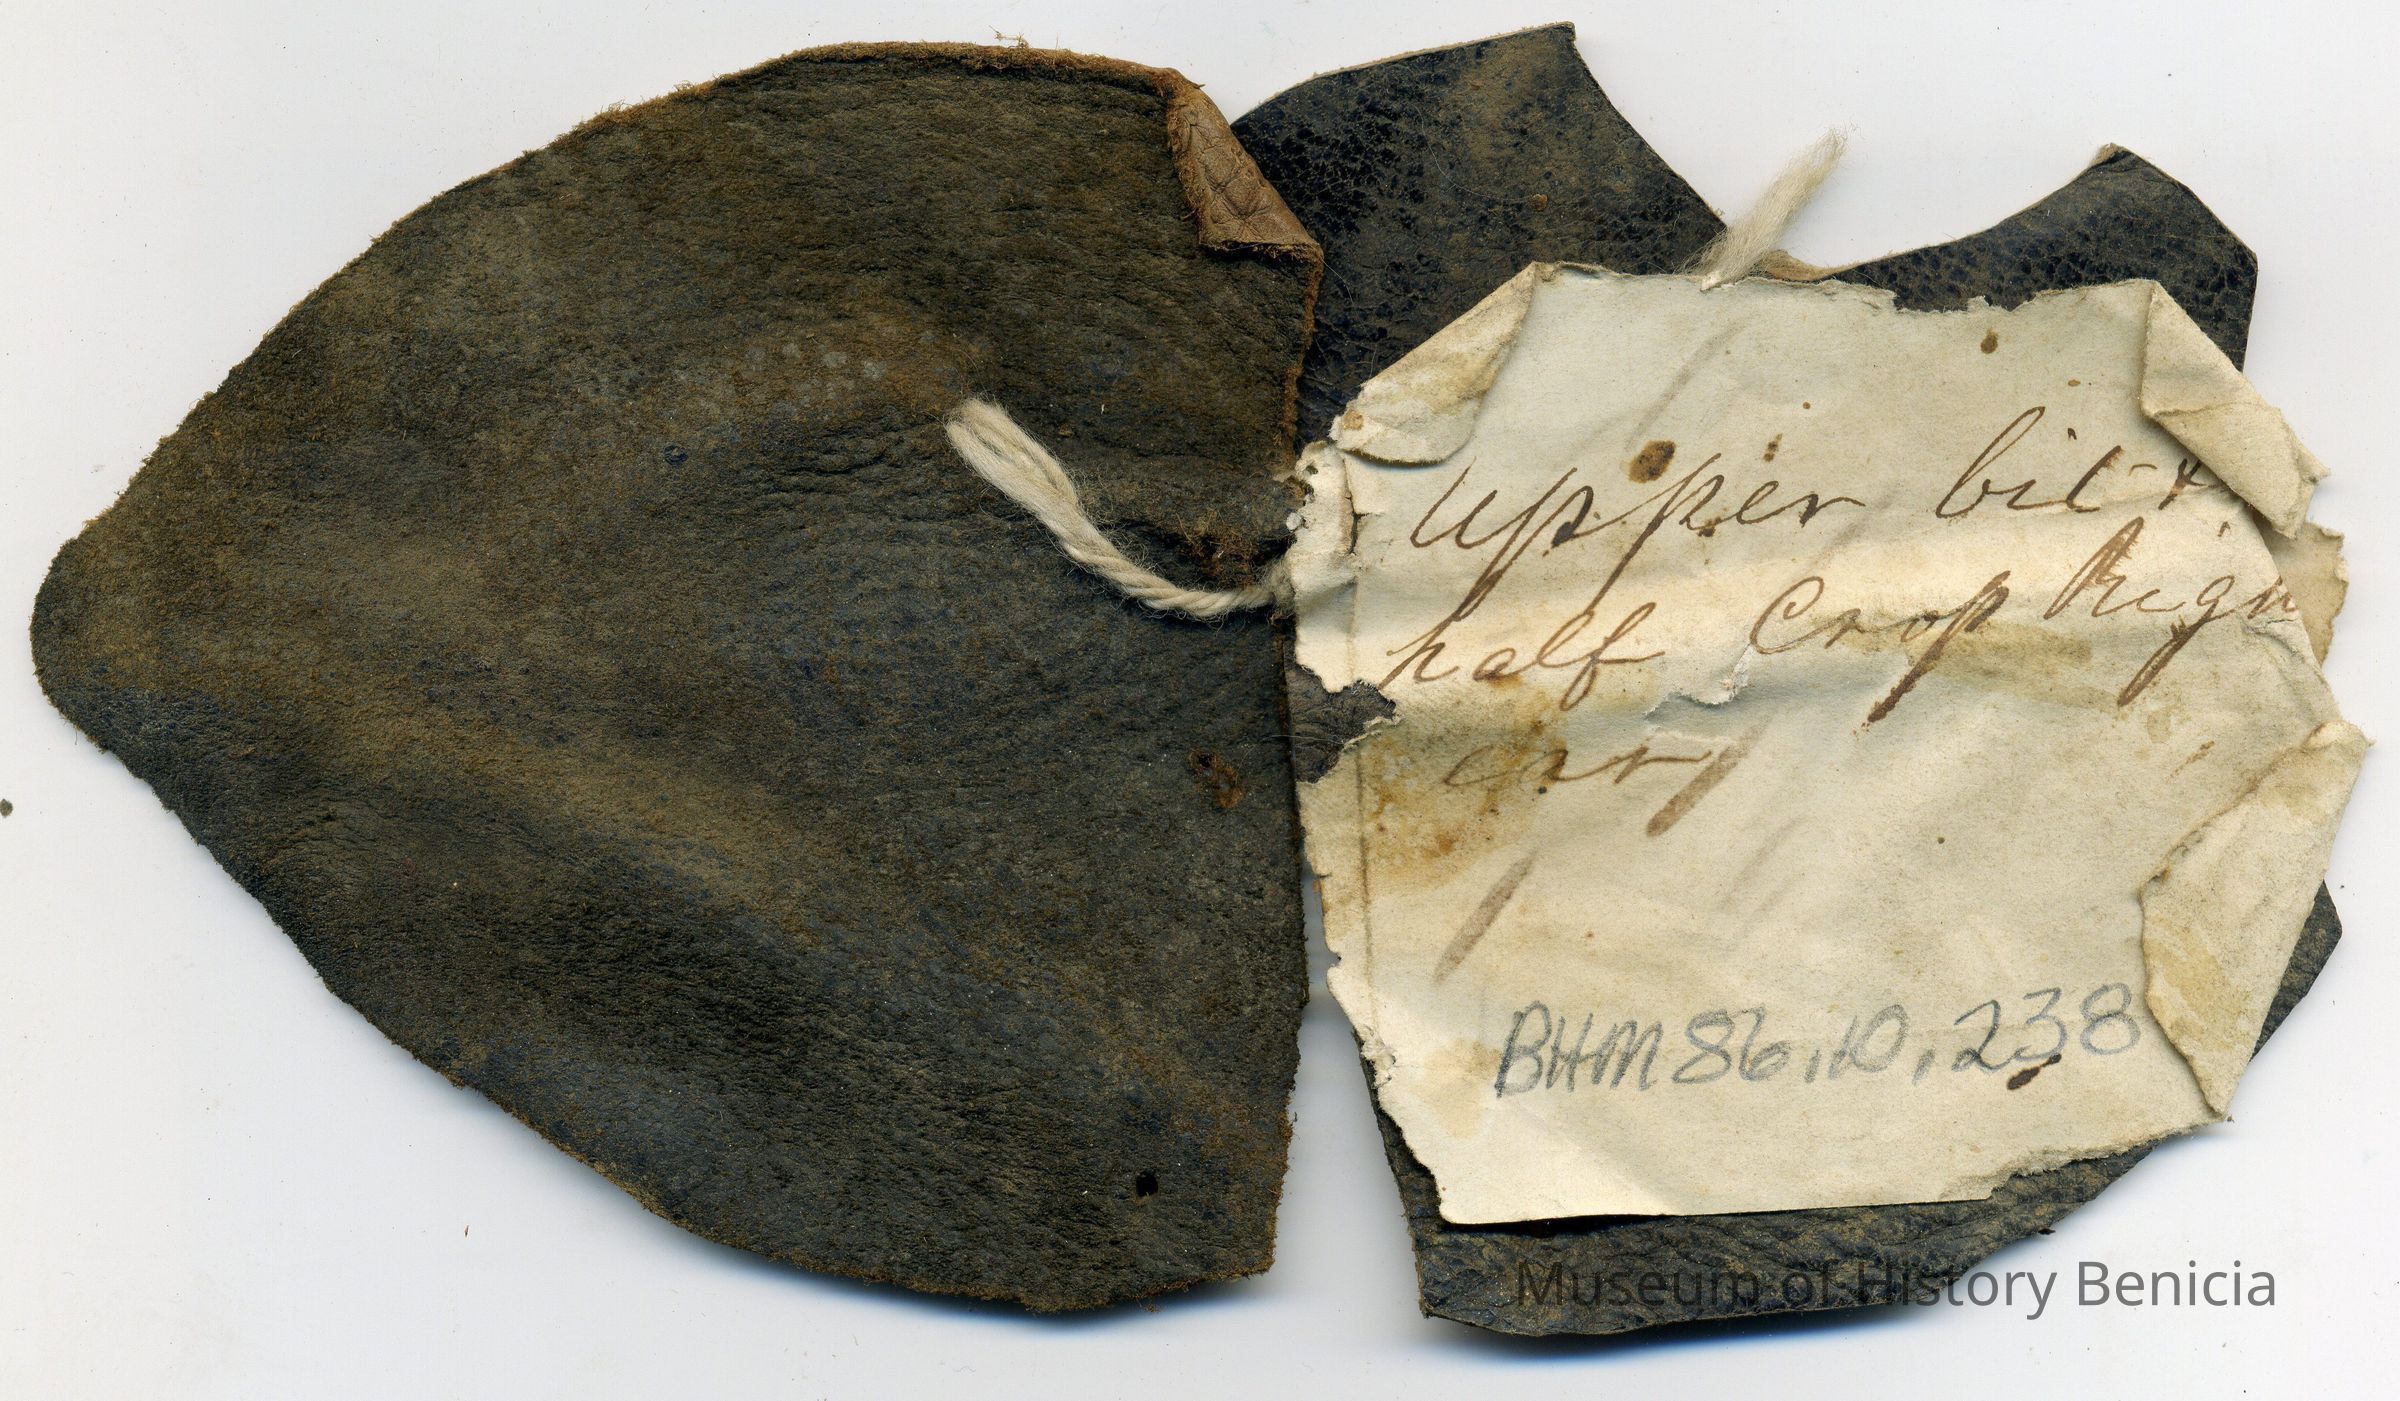 upper bit &
half Crop Righ
ear
BHM 86.10.238
Museum of History Benicia